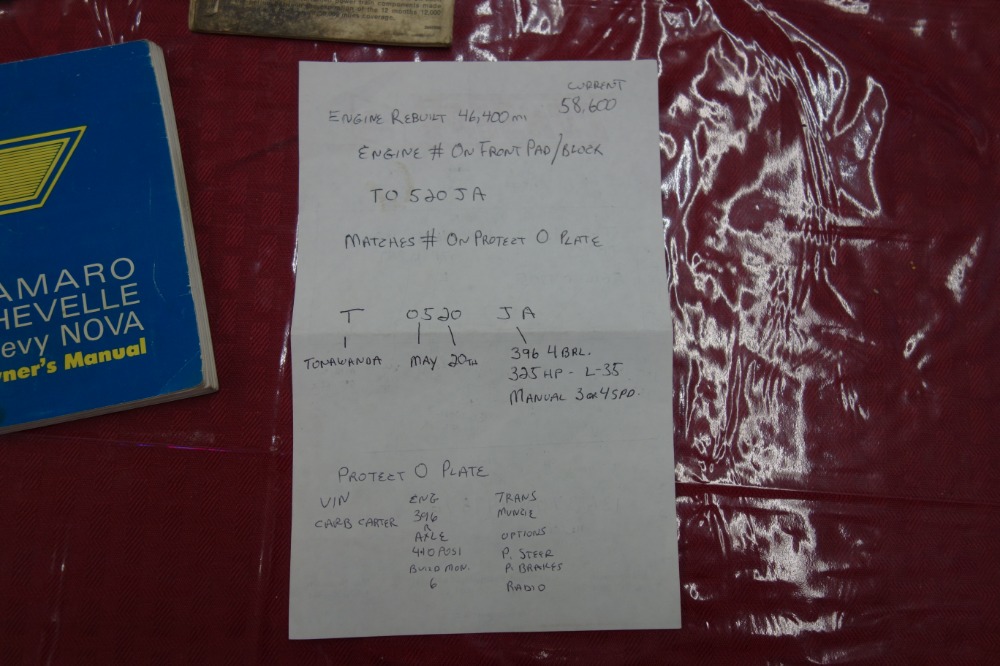 components made
of the 12 months 12,000
coverage.
AMARO
HEVELLE
evy NOVA
ner's Manual
CURRENT
58,600
ENGINE REBUILT 46,400 mi
ENGINE # ON FRONT PAD/BLOCK
TO 520 JA
MATCHES # ON PROTECT O PLATE
T 0520 JA
TONAWANDA MAY 20TH 396 4 BRL.
325 HP - L-35
MANUAL 3 OR 4 SPD.
PROTECT O PLATE
VIN ENG TRANS
CARB CARTER 396 MUNCIE
AXLE OPTIONS
410 POSI P. STEER
BUILD MON. P. BRAKES
6 RADIO